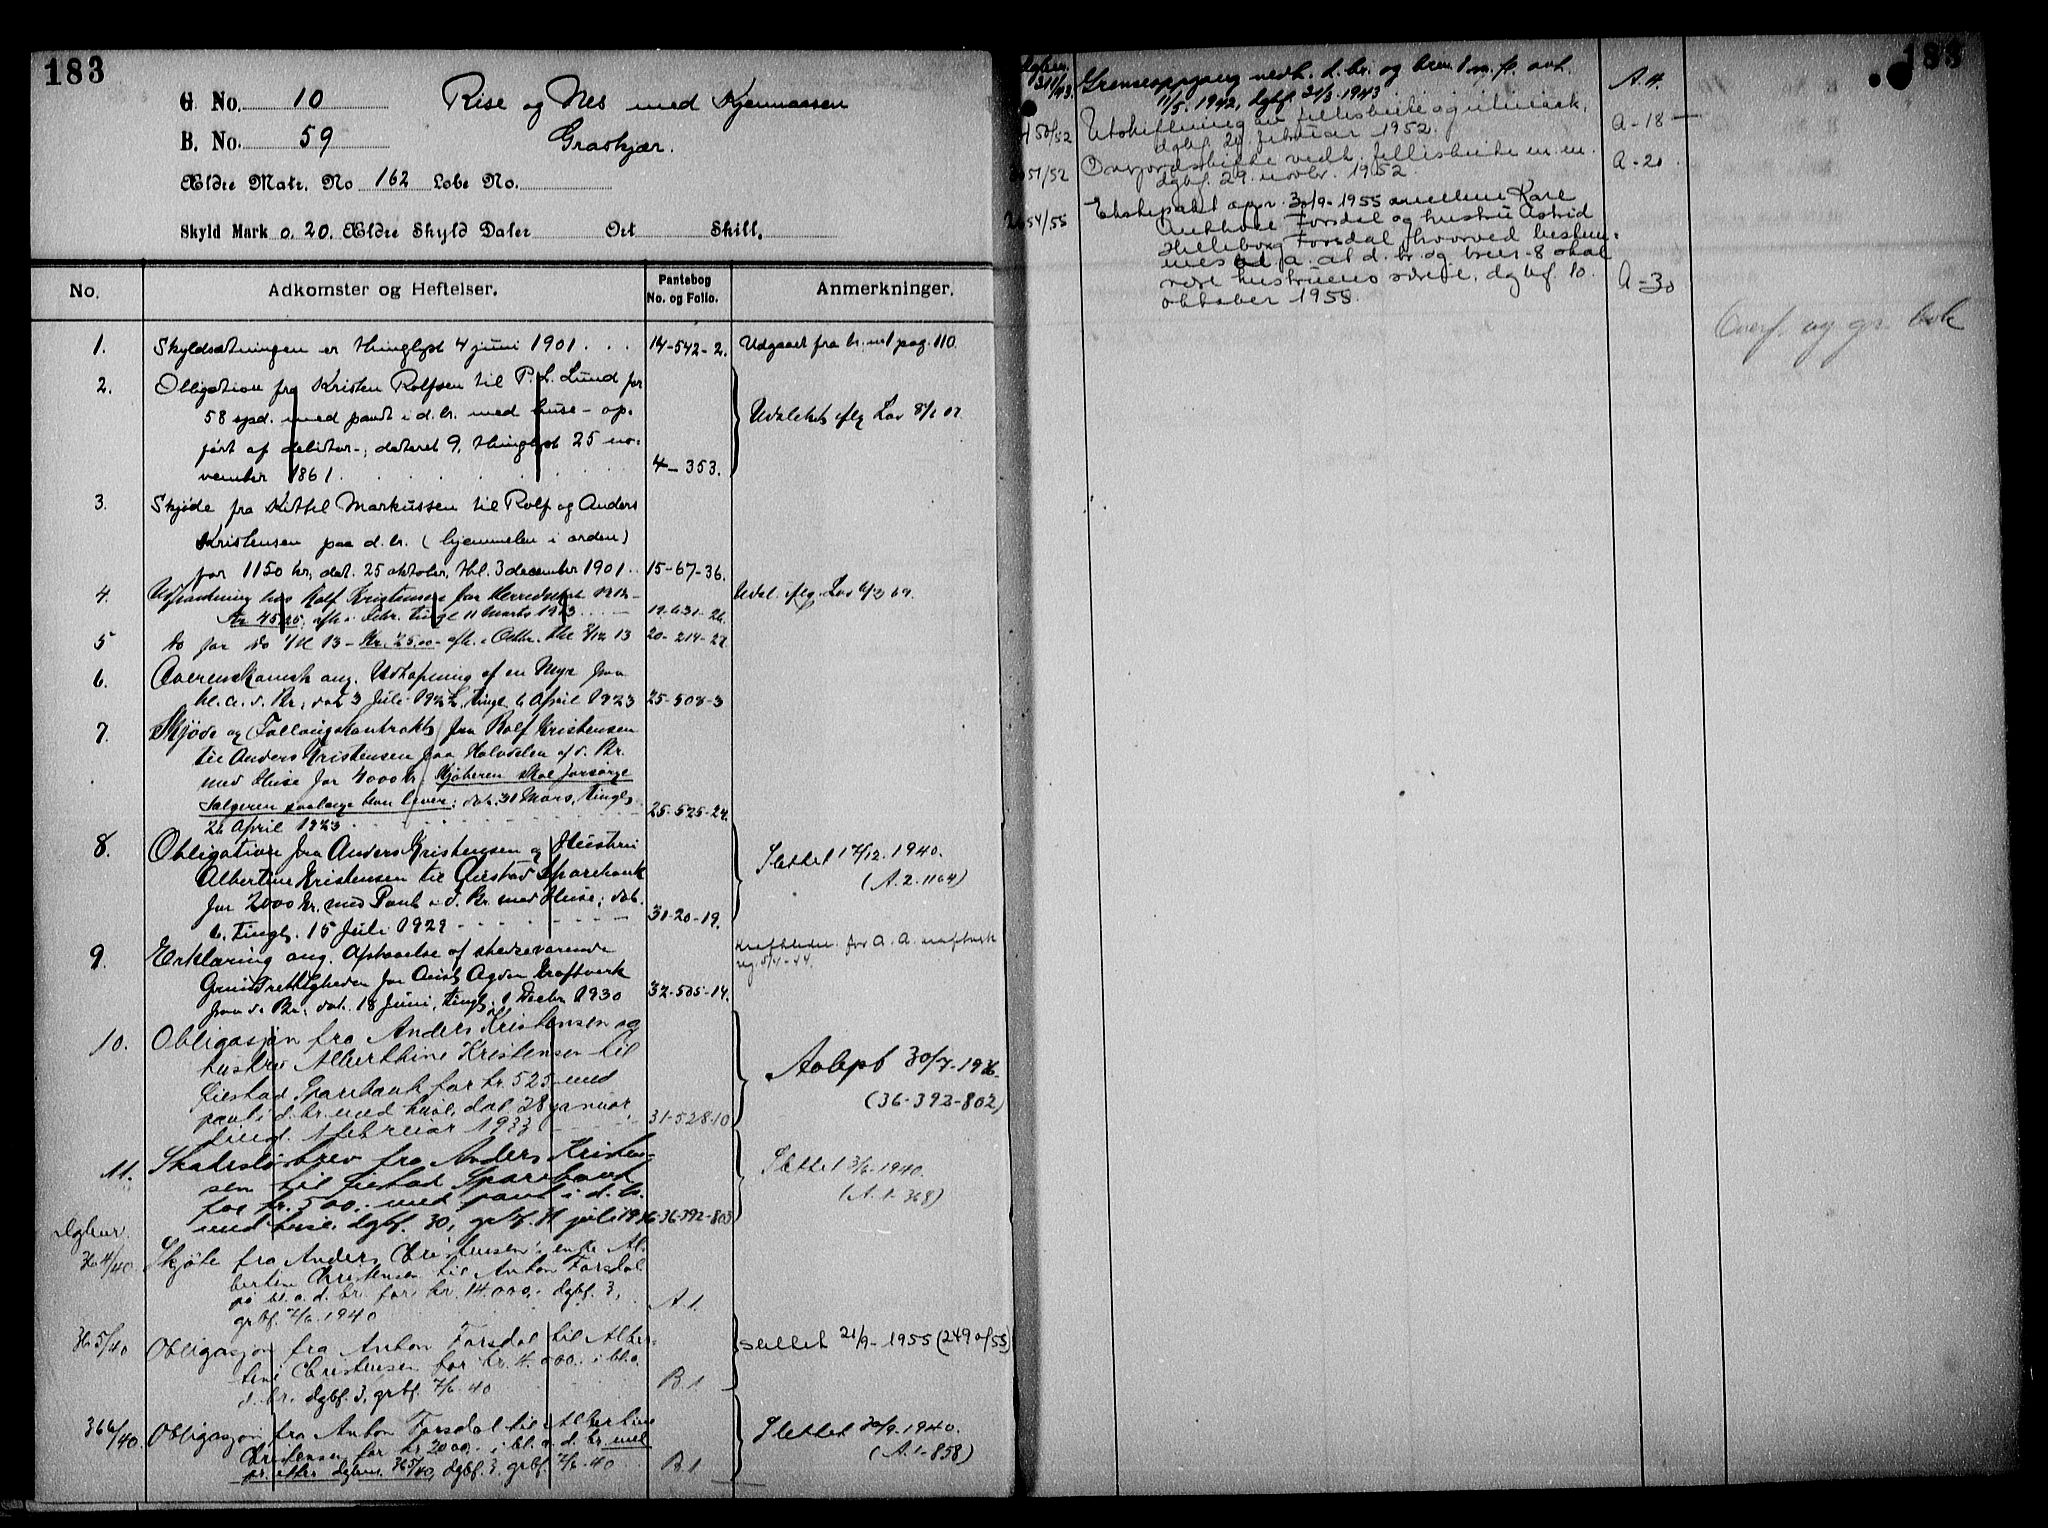 183
G. No. 10 Rise og Nes med Kjennaasen
B. No. 59 Graskjær.
Ældre Matr. No 162 Løbe No.
Skyld Mark 0.20. Ældre Skyld Daler Ort Skill.
No. Adkomster og Heftelser. Pantebog No. og Folio. Anmerkninger.
1. Skyldsætningen er thinglyst 4 juni 1901 . . . 14-542-2. Udgaaet fra br. nr 1 pag. 110.
2. Obligation fra Kristen Rolfsen til P. L. Lund for
58 spd. med pant i d. br. med huse - op-
ført af debitor -; dateret 9, thinglyst 25 no-
vember 1861. 4-353. Udslettet iflg Lov
3. Skjøde fra Kittil Markussen til Rolf og Anders
Kristensen paa d. br. (hjemmelen i orden)
for 1150 kr, dat. 25 oktober, thl. 3 december 1901. 15-67-36.
4. Udpantning hos Rolf Kristensen for Herreds
Kr 45.25, afh. i Febr. tingl 11 Marts 1913 19-631-26. Udsl. iflg. Lov
5 Do for Do 13 - Kr. 25.00 - afh. i Oktbr. thl 2/12 13 20-214-27
6. Overenskomst ang. Udtapning af en Myr paa
bl. a. d. Br., dat 3 Juli 1922, tingl. 6 April 1923 25-508-3
7. Skjøde og Føllaugskontrakt fra Rolf Kristensen
til Anders Kristensen paa Halvdelen af d. Br.
med Huse for 4000 kr. Kjøberen skal forsørge
Sælgeren saalænge han lever; dat. 31 Mars, tingl.
26 April 1923 25-525-24.
8. Obligation fra Anders Kristensen og Hustru
Albertine Kristensen til Øiestad Sparebank
for 2000 Kr. med Pant i d. Br. med Huse; dat.
6, tingl. 15 Juli 1929 31-20-19.
Slettet 17/12. 1940.
(A.2.1164)
9. Erklæring ang. Afstaaelse af stedsevarende
Grundrettigheder for Aust Agder Kraftverk
paa d. Br., dat. 18 Juni, tingl. 1 Decbr 1930 32-505-14.
Kraftleder. for A. A. kraftverk
reg. 5/4-44.
10. Obligasjon fra Anders Kristensen og
hustru Alberthine Kristensen til
Øiestad Sparebank for kr. 525 med
pant i d. br. med huse, dat 28 januar,
tingl. 1 februar 1933 31-528-10
Avlyst 30/7-1936.
(36-392-802)
11. Skadesløsbrev fra Anders Kristen-
sen til Øiestad Sparebank
for kr. 500.- med pant i d. br.
med huse. dgbf. 30, grbf. 31 juli 1936 36-392-803
Slettet 3/6-1940.
(A.1.368)
Dgbnr.
364/40. Skjøte fra Anders Christensens enke Al-
bertine Christensen til Anton Forsdal
på bl. a. d. br. for kr. 14.000.- dgbf. 3,
grbf. 7/6.1940 A.1.
365/40 Obligasjon fra Anton Forsdal til Alber-
tine Christensen for kr. 4.000.- i bl. a.
d. br. dgbf. 3, grbf. 7/6-40 B.1.
slettet 21/9-1955 (2490/55)
366/40. Obligasjon fra Anton Forsdal til Albertine
Christensen for kr 2000.- i bl. a. d. br. med
pr. etter dgbnr. 365/40, dgbf. 3, grbf. 7/6-40 B.1.
Slettet 30/9-1940.
(A.1-858)
183
Dgbnr.
311/43. Grenseoppgang vedk. d. br. og brnr. 1 m. fl. avh.
11/5. 1942, dgbf. 31/3-1943 A.4.
450/52 Utskiftning av fellesbeite og utmark,
dgbf. 29 februar 1952. A-18
51/52 Overjordskifte vedk. fellesbeite m.m.
dgbf. 29. novbr. 1952. A-20
2654/55 Ektepakt oppr. 30/9-1955 mellem Kåre
Anthone Forsdal og hustru Astrid
Hilleborg Forsdal, hvorved bestem-
mes bl. a. at d. br. og brnr. 8 skal
være hustruens særeie, dgbf. 10.
oktober 1955. A-30
Overf. ny gr. bok